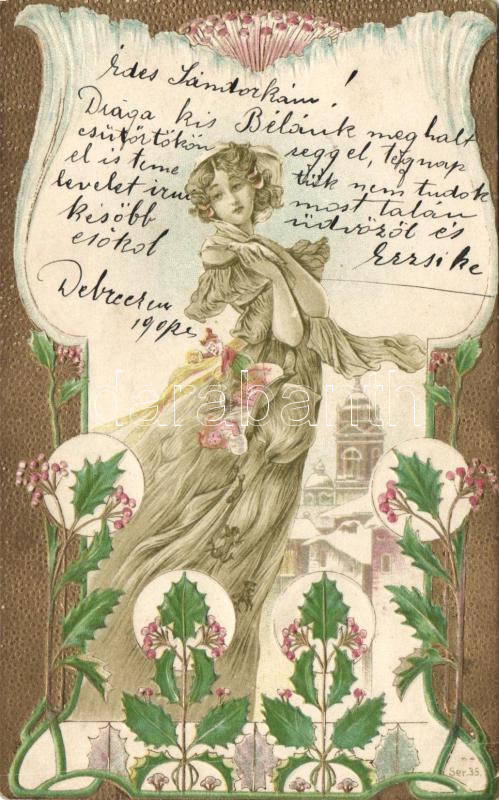 Édes Sándorkám!
Drága kis Bélánk meghalt
csütörtökön reggel, tegnap
el is teme tük nem tudok
levelet irni most talán
később üdvözöl és
csókol Erzsike
Debreczen
darabanth
Ser. 35.